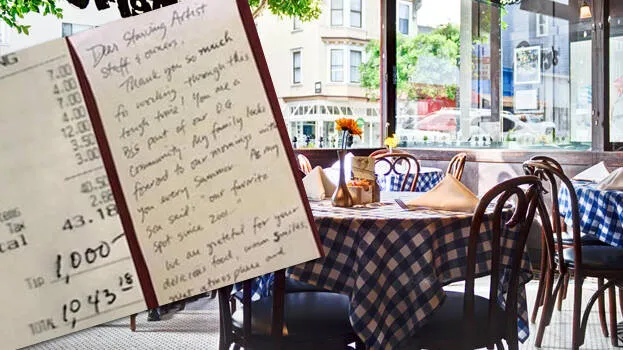 NG
7.00
4.00
7.00
4.00
12.00
3.50
3.00
40.50
2.6
Tax
tal 43.18
TIP 1,000-
TOTAL 1,043 18
Dear Starving Artist
staff & owners,
Thank you so much
for working through this
tough time! You are a
big part of our O.G.
community. My family looks
forward to our mornings with
you every summer. As my
son said, "our favorite
spot since
We are grateful for your
delicious food, warm smiles,
great atmosphere and